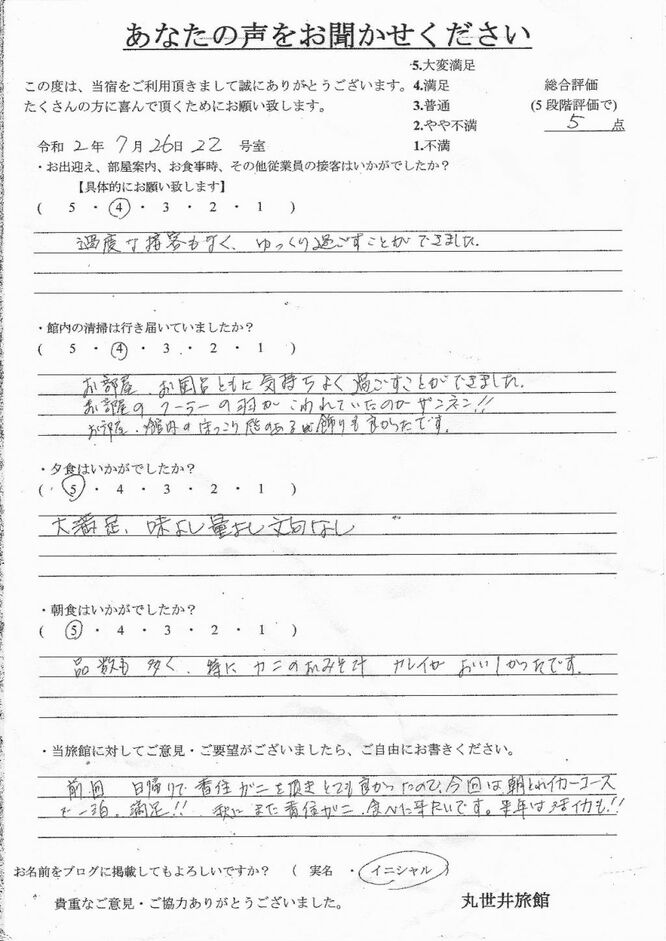 あなたの声をお聞かせください
この度は、当宿をご利用頂きまして誠にありがとうございます。
たくさんの方に喜んで頂くためにお願い致します。
5.大変満足
4.満足
3.普通
2.やや不満
1.不満
総合評価
(5段階評価で)
5 点
令和 2 年 7 月 26 日 22 号室
・お出迎え、部屋案内、お食事時、その他従業員の接客はいかがでしたか？
【具体的にお願い致します】
( 5 ・ 4 ・ 3 ・ 2 ・ 1 )
過度な接客もなく、ゆっくり過ごすことができました。
・館内の清掃は行き届いていましたか？
( 5 ・ 4 ・ 3 ・ 2 ・ 1 )
お部屋 お風呂ともに気持ちよく過ごすことができました。
お部屋のクーラーの羽がこわれていたのがザンネン!!
お部屋・館内のほっこり感のある飾りも良かったです。
・夕食はいかがでしたか？
( 5 ・ 4 ・ 3 ・ 2 ・ 1 )
大満足、味よし量よし文句なし
・朝食はいかがでしたか？
( 5 ・ 4 ・ 3 ・ 2 ・ 1 )
品数も多く、特にカニのおみそ汁 カレイが おいしかったです。
・当旅館に対してご意見・ご要望がございましたら、ご自由にお書きください。
前回 日帰りで香住ガニを頂きとても良かったので、今回は朝とれイカーコース
で一泊。満足!! 秋にまた香住ガニ 食べに来たいです。来年は活イカも!!
お名前をブログに掲載してもよろしいですか？ ( 実名 ・ イニシャル )
貴重なご意見・ご協力ありがとうございました。
丸世井旅館